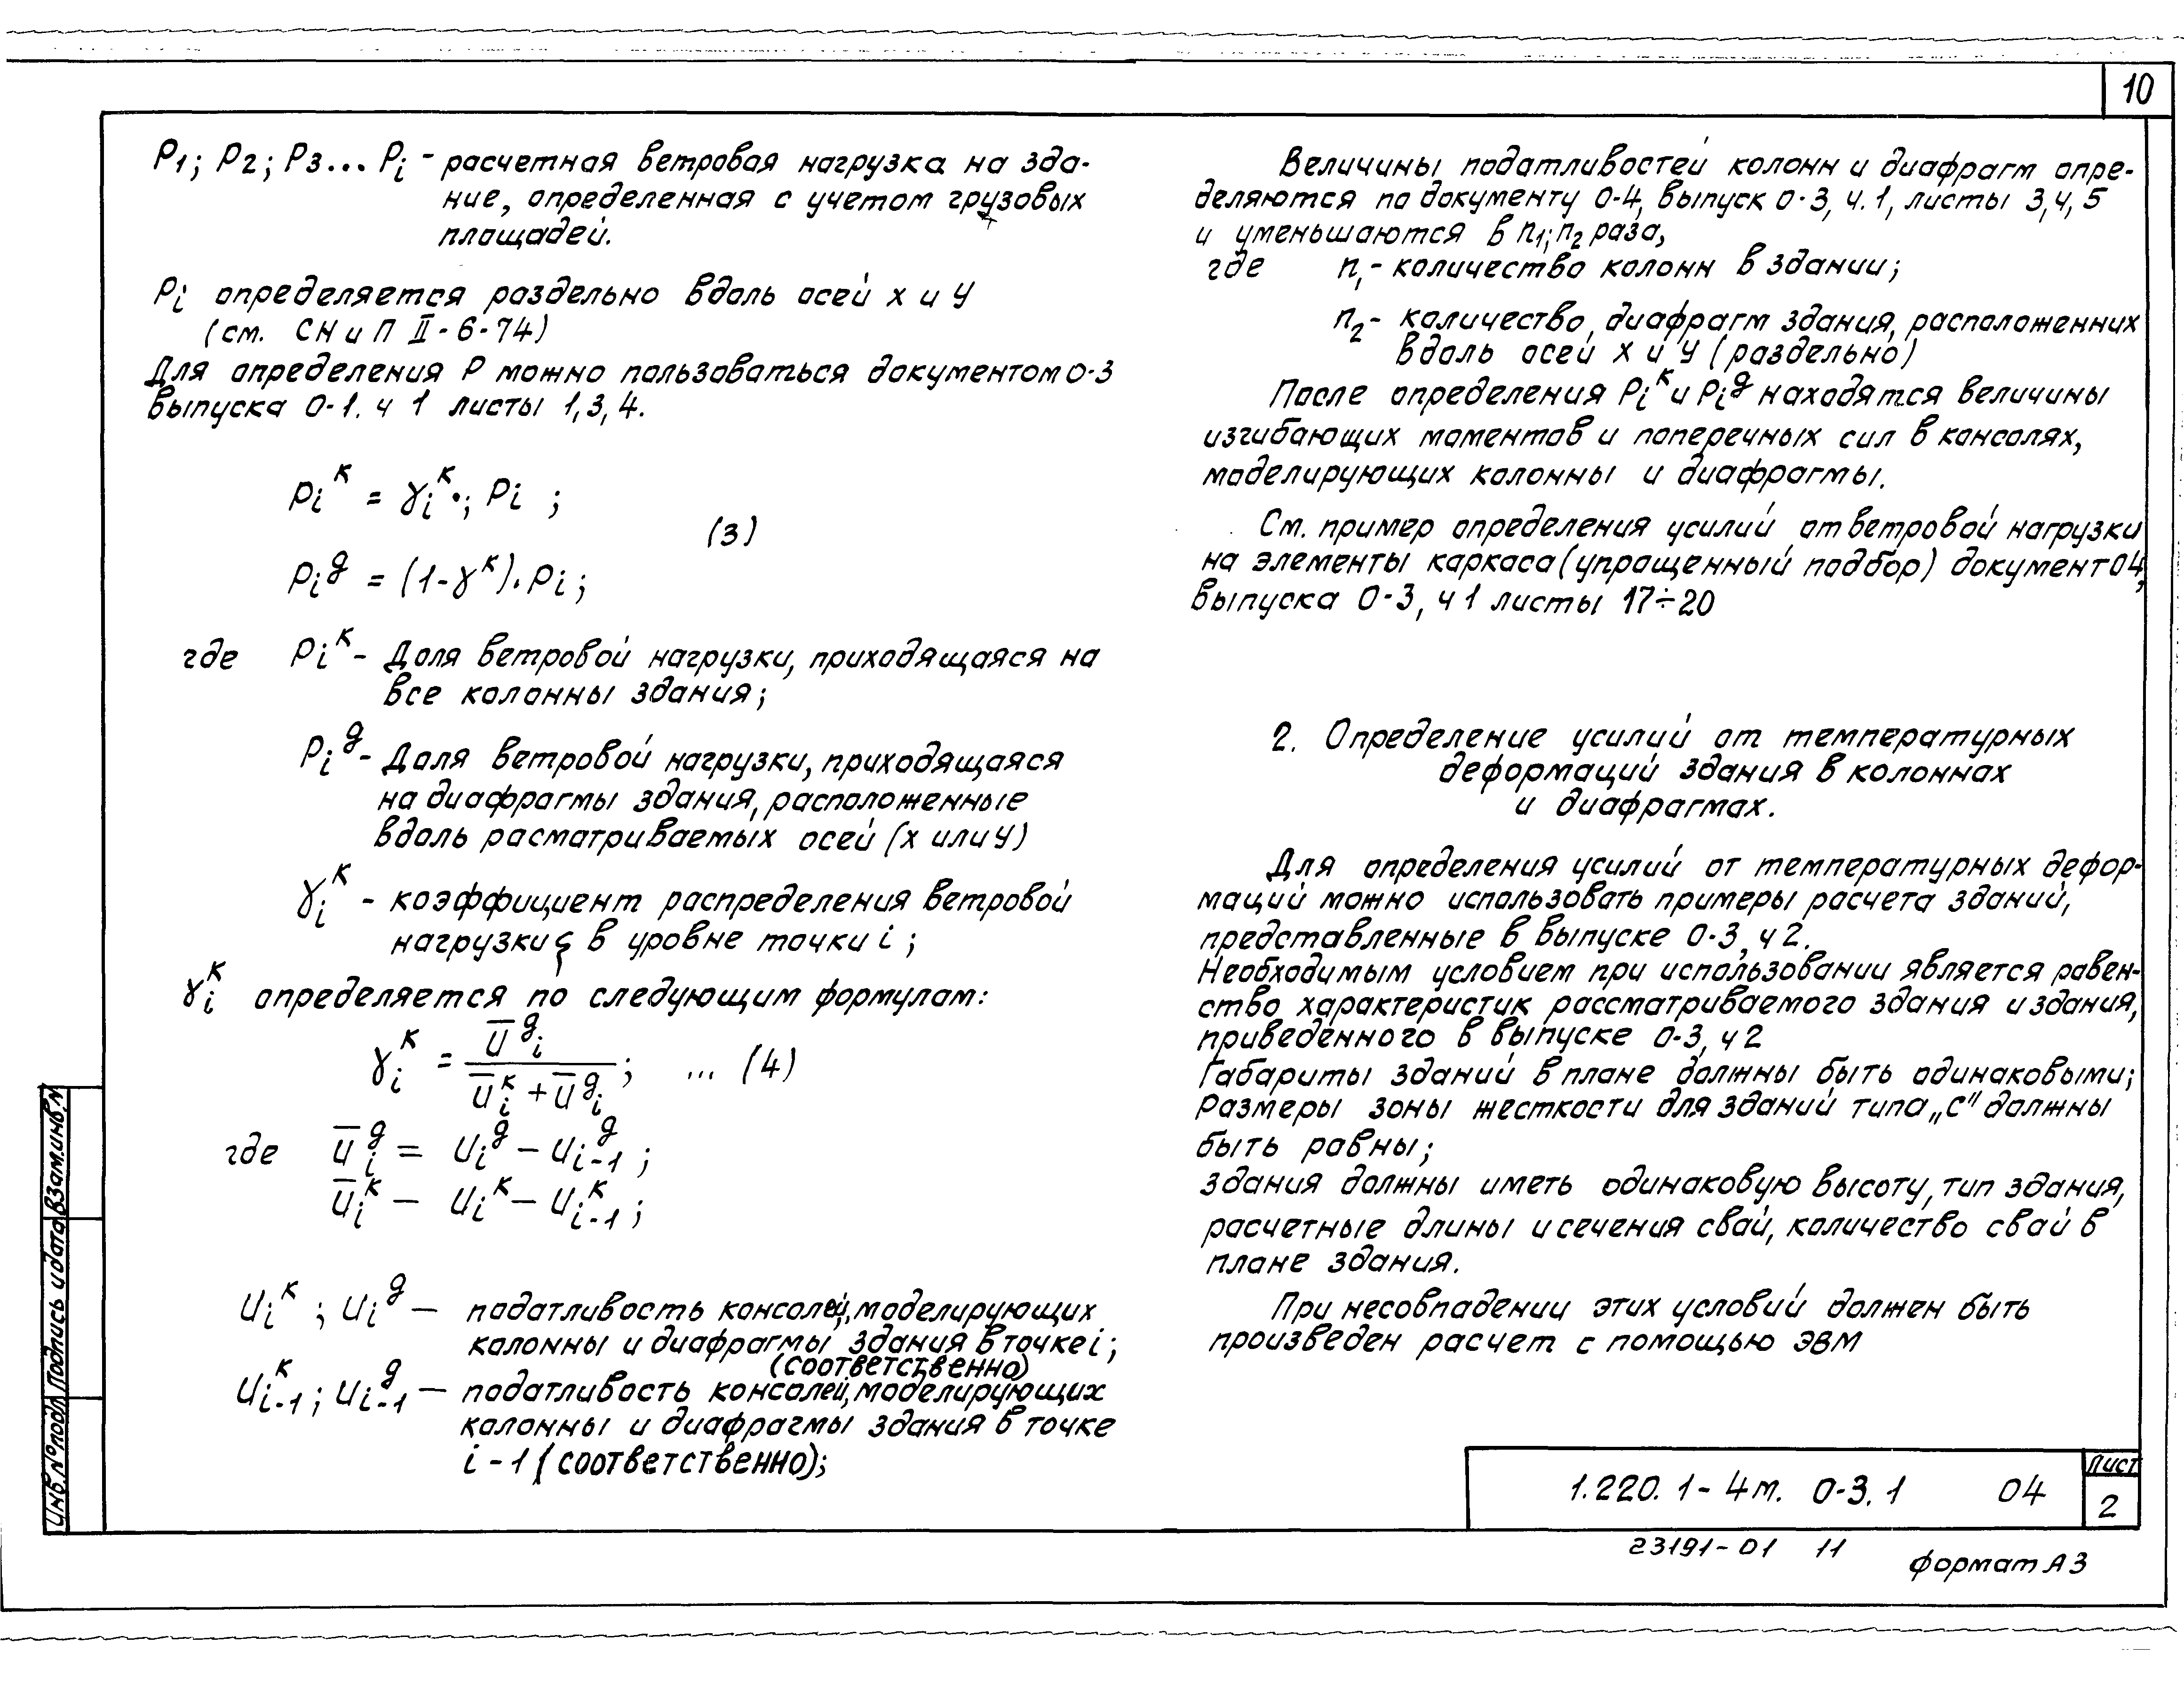 10
P1; P2; P3... Pi - расчетная ветровая нагрузка на зда-
ние, определенная с учетом грузовых
площадей.
Pi определяется раздельно вдоль осей х и у
(см. СНиП II-6-74)
Для определения Р можно пользоваться документом 0-3
выпуска 0-1. ч 1 листы 1,3,4.
Pi^к = γi^к·; Pi ;
(3)
Pi^д = (1-γ^к)·Pi;
где Pi^к - Доля ветровой нагрузки, приходящаяся на
все колонны здания;
Pi^д - Доля ветровой нагрузки, приходящаяся
на диафрагмы здания, расположенные
вдоль расматриваемых осей (х или у)
γi^к - коэффициент распределения ветровой
нагрузки в уровне точки i;
γi^к определяется по следующим формулам:
γi^к = U̅i^д / (U̅i^к + U̅i^д); ... (4)
где U̅i^д = Ui^д - Ui-1^д;
U̅i^к - Ui^к - Ui-1^к;
Ui^к; Ui^д — податливость консолей, моделирующих
колонны и диафрагмы, здания в точке i;
(соответственно)
Ui-1^к; Ui-1^д — податливость консолей, моделирующих
колонны и диафрагмы здания в точке
i-1 (соответственно);
Величины податливостей колонн и диафрагм опре-
деляются по документу 0-4, выпуск 0-3, ч.1, листы 3,4,5
и уменьшаются в n1; n2 раза,
где n1 - количество колонн в здании;
n2 - количество диафрагм здания, расположенних
вдоль осей х и у (раздельно)
После определения Pi^к и Pi^д находятся величины
изгибающих моментов и поперечных сил в консолях,
моделирующих колонны и диафрагмы.
См. пример определения усилий от ветровой нагрузки
на элементы каркаса (упращенный подбор) документ 04,
выпуска 0-3, ч 1 листы 17÷20
2. Определение усилий от температурных
деформаций здания в колоннах
и диафрагмах.
Для определения усилий от температурных дефор-
маций можно использовать примеры расчета зданий,
представленные в выпуске 0-3, ч 2.
Необходимым условием при использовании является равен-
ство характеристик рассматриваемого здания и здания,
приведенного в выпуске 0-3, ч 2
Габариты зданий в плане должны быть одинаковыми;
Размеры зоны жесткости для зданий типа „С" должны
быть равны;
здания должны иметь одинаковую высоту, тип здания,
расчетные длины и сечения свай, количество свай в
плане здания.
При несовпадении этих условий должен быть
произведен расчет с помощью ЭВМ
Инв.№подл. Подпись и дата Взам.инв.№
1.220.1-4м. 0-3.1 04
Лист
2
23191-01 11
формат А3